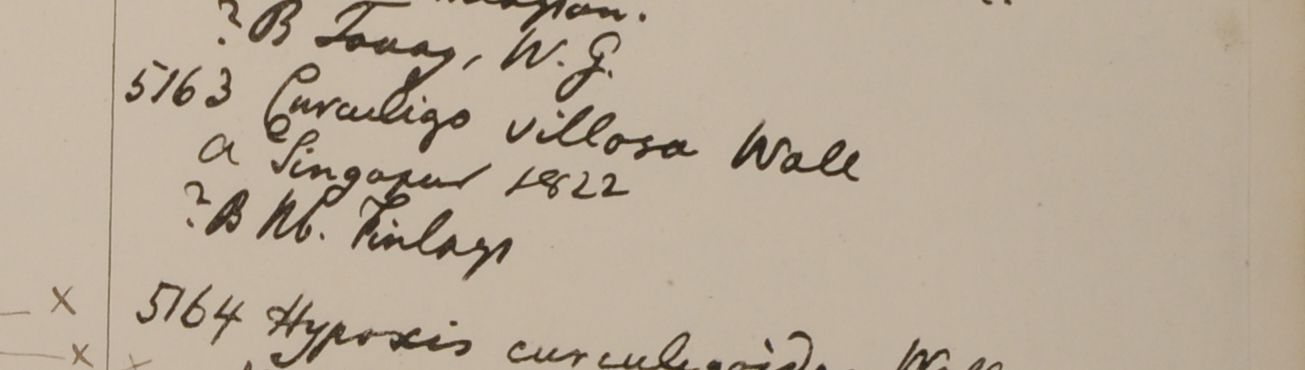 ? B Tavoy, W. G.
5163 Curculigo villosa Wall
a Singapur 1822
? B Hb. Finlays
5164 Hypoxis curculigoides Wall